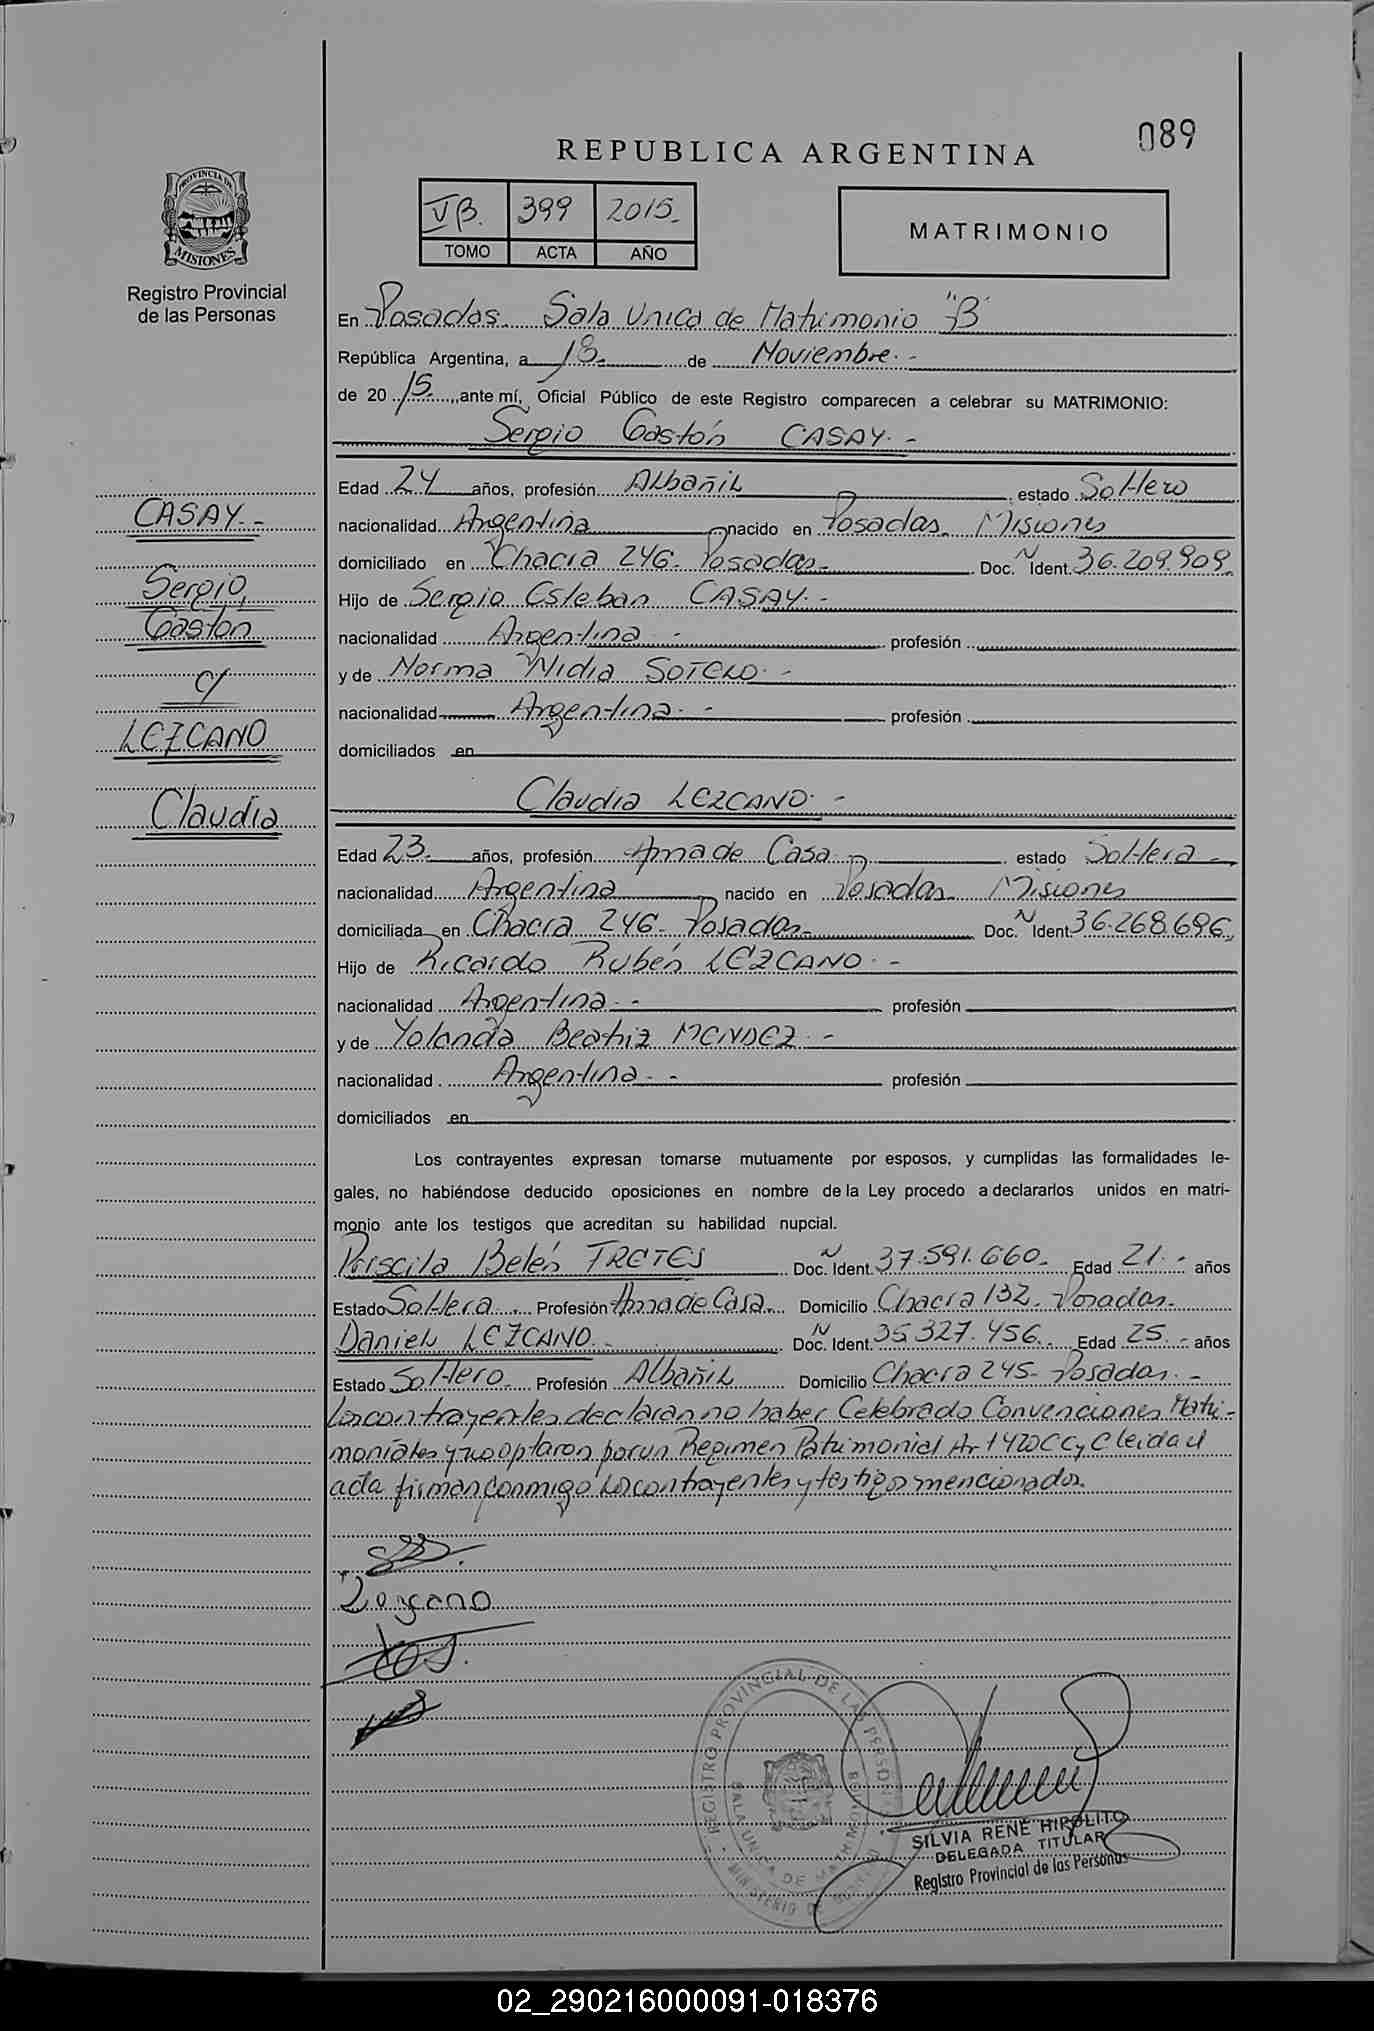 089
REPUBLICA ARGENTINA
PROVINCIA DE MISIONES
Registro Provincial
de las Personas
VB. 399 2015.-
TOMO ACTA AÑO
MATRIMONIO
En Posadas. Sala Unica de Matrimonio "B"
República Argentina, a 13.- de Noviembre.-
de 2015. ante mí, Oficial Público de este Registro comparecen a celebrar su MATRIMONIO:
Sergio Gastón CASAY.-
Edad 24 años, profesión Albañil estado Soltero
nacionalidad Argentina nacido en Posadas. Misiones
domiciliado en Chacra 246. Posadas.- Doc. N Ident. 36.209.909.
Hijo de Sergio Esteban CASAY.-
nacionalidad Argentina.- profesión
y de Norma Nidia SOTELO.-
nacionalidad Argentina.- profesión
domiciliados en
Claudia LEZCANO.-
Edad 23.- años, profesión Ama de Casa. estado Soltera.-
nacionalidad Argentina nacido en Posadas. Misiones
domiciliada en Chacra 246. Posadas.- Doc. N Ident. 36.268.696.
Hijo de Ricardo Rubén LEZCANO.-
nacionalidad Argentina.- profesión
y de Yolanda Beatriz MENDEZ.-
nacionalidad Argentina.- profesión
domiciliados en
CASAY.-
Sergio,
Gastón
c/
LEZCANO
Claudia
Los contrayentes expresan tomarse mutuamente por esposos, y cumplidas las formalidades le-
gales, no habiéndose deducido oposiciones en nombre de la Ley procedo a declararlos unidos en matri-
monio ante los testigos que acreditan su habilidad nupcial.
Priscila Belén TRETES Doc. N Ident. 37.591.660.- Edad 21.- años
Estado Soltera. Profesión Ama de Casa. Domicilio Chacra 132. Posadas.
Daniel LEZCANO.- Doc. N Ident. 35.327.456. Edad 25.- años
Estado Soltero. Profesión Albañil Domicilio Chacra 245- Posadas.-
Los contrayentes declaran no haber Celebrado Convenciones Matri-
moniales y no optaron por un Regimen Patrimonial Ar 1420 CC y C leida el
acta firman conmigo los contrayentes y testigos mencionados.
Lezcano
REGISTRO PROVINCIAL DE LAS PERSONAS
SALA UNICA DE MATRIMONIO
MINISTERIO DE
SILVIA RENÉ HIPOLITO
DELEGADA TITULAR
Registro Provincial de las Personas
02_290216000091-018376